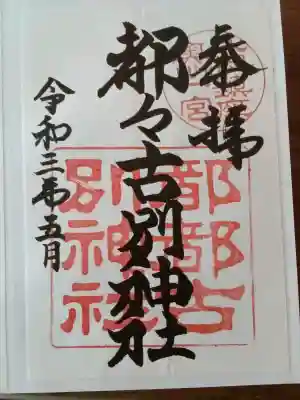 奉拝
都々古別神社
令和三年五月
都都古
別神社